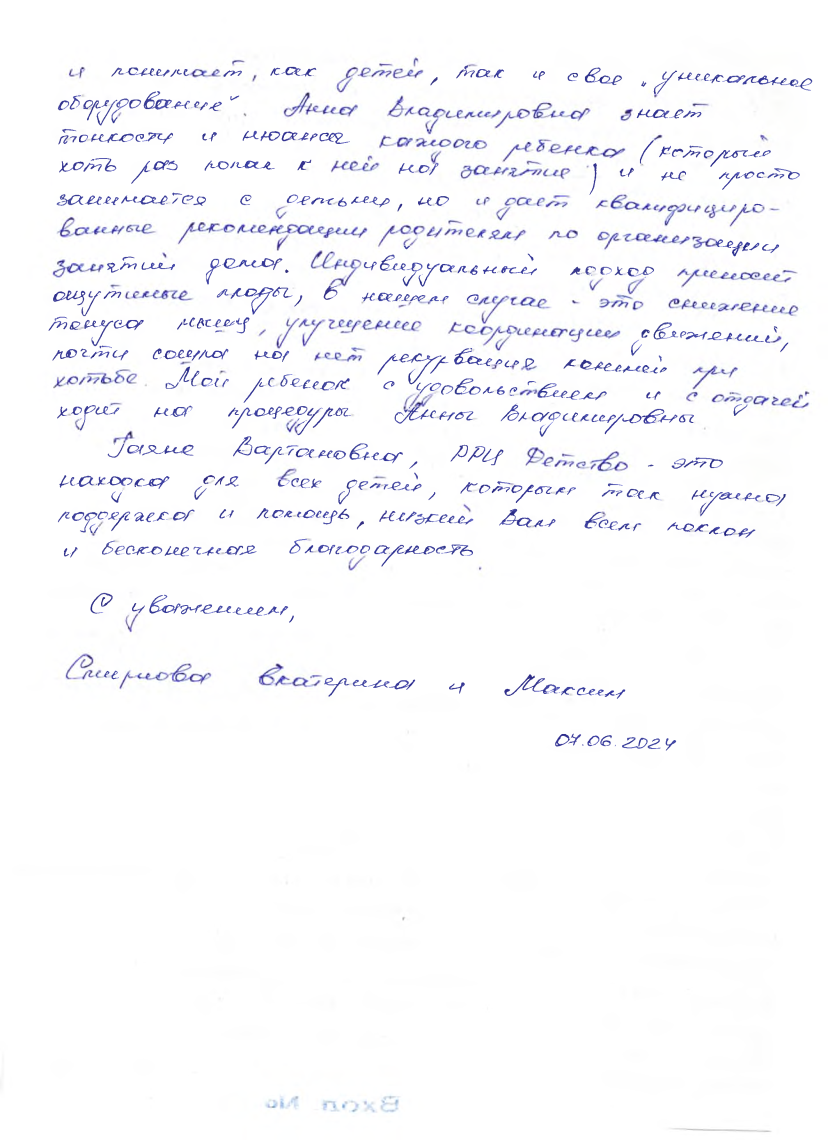 и понимает, как детей, так и свое „уникальное
оборудование". Анна Владимировна знает
тонкости и нюансы каждого ребенка (который
хоть раз попал к ней на занятие) и не просто
занимается с детьми, но и дает квалифициро-
ванные рекомендации родителям по организации
занятий дома. Индивидуальный подход приносит
ощутимые плоды, в нашем случае - это снижение
тонуса мышц, улучшение координации движений,
почти сошла на нет рекурвация коленей при
хотьбе. Мой ребенок с удовольствием и с отдачей
ходит на процедуры Анны Владимировны.
Гаяне Вартановна, РРЦ Детство - это
находка для всех детей, которым так нужна
поддержка и помощь, низкий Вам всем поклон
и бесконечная благодарность.
С уважением,
Смирнова Екатерина и Максим
07.06.2024
Вход. №